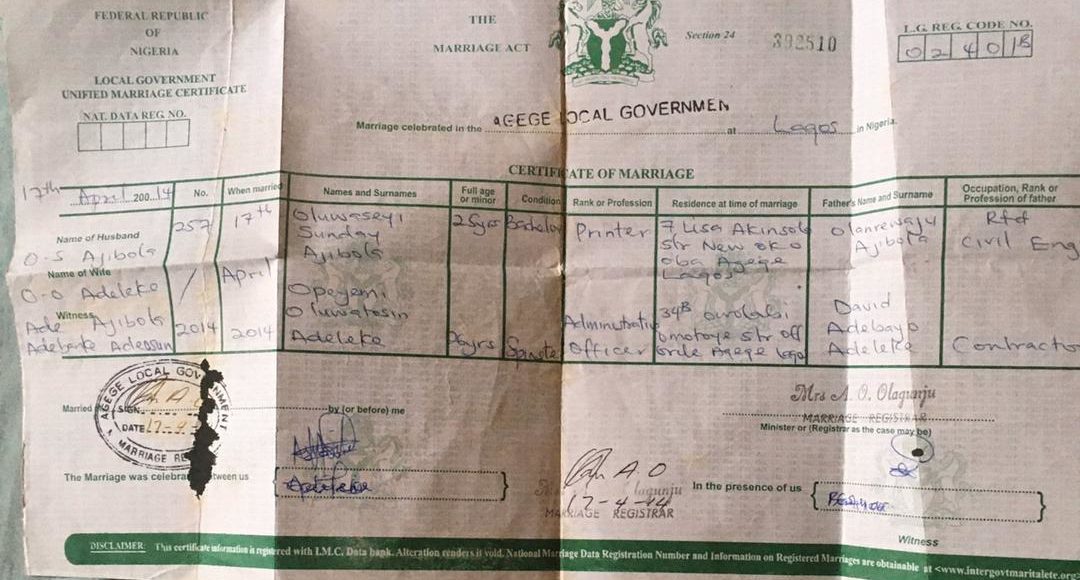 FEDERAL REPUBLIC
OF
NIGERIA
LOCAL GOVERNMENT
UNIFIED MARRIAGE CERTIFICATE
NAT. DATA REG. NO.
THE
MARRIAGE ACT
Section 24
392510
L.G. REG. CODE NO.
0 2 4 0 1B
Marriage celebrated in the AGEGE LOCAL GOVERNMEN at Lagos in Nigeria.
CERTIFICATE OF MARRIAGE
17th April 200 14
No.
When married
Names and Surnames
Full age
or minor
Condition
Rank or Profession
Residence at time of marriage
Father's Name and Surname
Occupation, Rank or
Profession of father
Name of Husband
O-S Ajibola
Name of Wife
O-O Adeleke
Witness
Ade Ajibola
257
/
2014
17th
April
2014
Oluwaseyi
Sunday
Ajibola
25yrs
Bachelor
Printer
7 Lisa Akinsola
Str New oko
oba Agege
Lagos
Olanrewaju
Ajibola
Rtd
Civil Eng
Opeyemi
Oluwatosin
Adeleke
Spinste
Administrati
Officer
34B
omotoye str off
Agege
David
Adebayo
Adeleke
Contracto
AGEGE LOCAL GOVERNMENT
SIGN.
DATE
MARRIAGE RE
Married
by (or before) me
Mrs A. O. Olagunju
MARRIAGE REGISTRAR
Minister or (Registrar as the case may be)
The Marriage was celebra between us
Adeleke
A O
17-4-14
Olagunju
MARRIAGE REGISTRAR
In the presence of us
Witness
DISCLAIMER: This certificate information is registered with I.M.C. Data bank. Alteration renders it void. National Marriage Data Registration Number and Information on Registered Marriages are obtainable at <www.intergovtmaritalete.org>